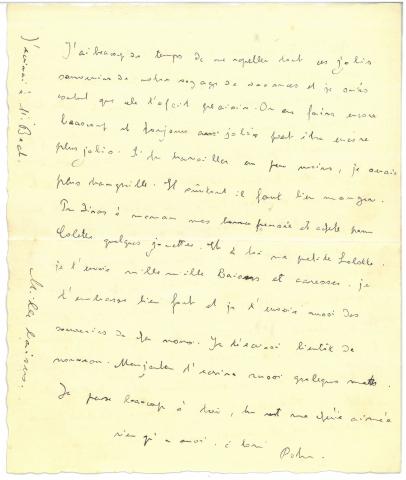 J'ai beaucoup de temps de me rappeller tout ces jolis
souvenirs de notre voyage de vacances et je suis
content que cela t'a fait plaisir. On en faira encore
beaucoup et toujours aussi jolis peut être encore
plus jolis. Si tu travailles un peu moins, je serais
plus tranquille. Et surtout il faut bien manger.
Tu diras à maman mes et achete pour
Colette quelques jouettes. Et à toi ma petite
je t'envoie mille mille Baisers et caresses. je
t'embrasse bien fort et je t'envoie aussi des
souvenirs de . Je t'écrirai bientôt de
nouveau. t'écrira aussi quelques mots.
Je pense beaucoup à toi, tu es ma chérie aimée
rien qu'a moi. à toi
J'écrirai à M. Bed.
Mille baisers.